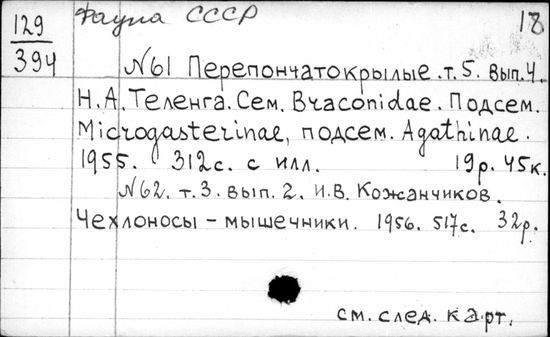 129
394
Фауна СССР
18
N61 Перепончатокрылые. т. 5. вып. 4.
Н. А. Теленга. Сем. Braconidae. Подсем.
Microgasterinae, подсем. Agathinae.
1955. 312с. с илл. 19р. 45к.
N62. т. 3. вып. 2. И. В. Кожанчиков.
Чехлоносы – мышечники. 1956. 517с. 32р.
см. след. карт.